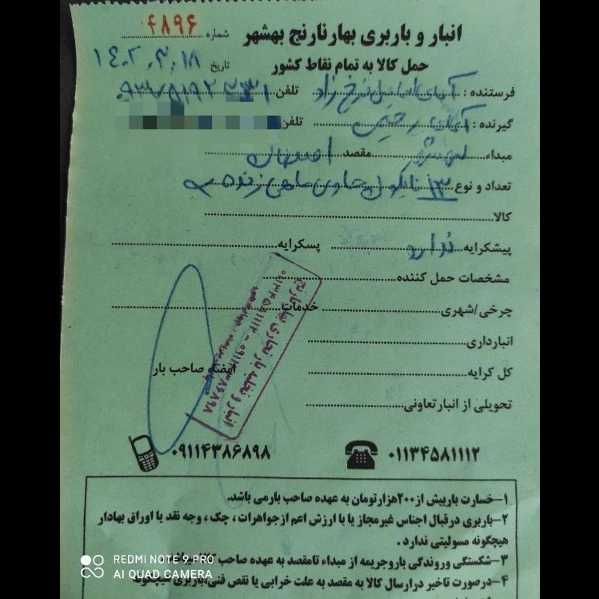 انبار و باربری بهارنارنج بهشهر
شماره ۴۸۹۶
حمل کالا به تمام نقاط کشور
تاریخ ۱۴۰۲،۳،۱۸
فرستنده : آقای اسماعیل فرخ زاد تلفن
گیرنده : آقای رحیمی تلفن
مبداء بهشهر مقصد اصفهان
تعداد و نوع ۱۳ نایلون حاوی ماهی زنده
کالا:
پیشکرایه ندارد پسکرایه:
مشخصات حمل کننده
چرخی/شهری خدمات
انبارداری
کل کرایه امضاء صاحب بار
تحویلی از انبارتعاونی
۰۱۱۳۴۵۸۱۱۱۲ ۰۹۱۱۴۳۸۶۸۹۸
۱-خسارت باربیش از ۲۰۰هزارتومان به عهده صاحب بارمی باشد.
۲-باربری درقبال اجناس غیرمجاز یا با ارزش اعم ازجواهرات ، چک ، وجه نقد یا اوراق بهادار
هیچگونه مسولیتی ندارد .
۳-شکستگی وروندگی باروجریمه از مبداء تامقصد به عهده صاحب
۴-درصورت تاخیر درارسال کالا به مقصد به علت خرابی یا نقص فنی،باربری هیچگونه
REDMI NOTE 9 PRO
AI QUAD CAMERA